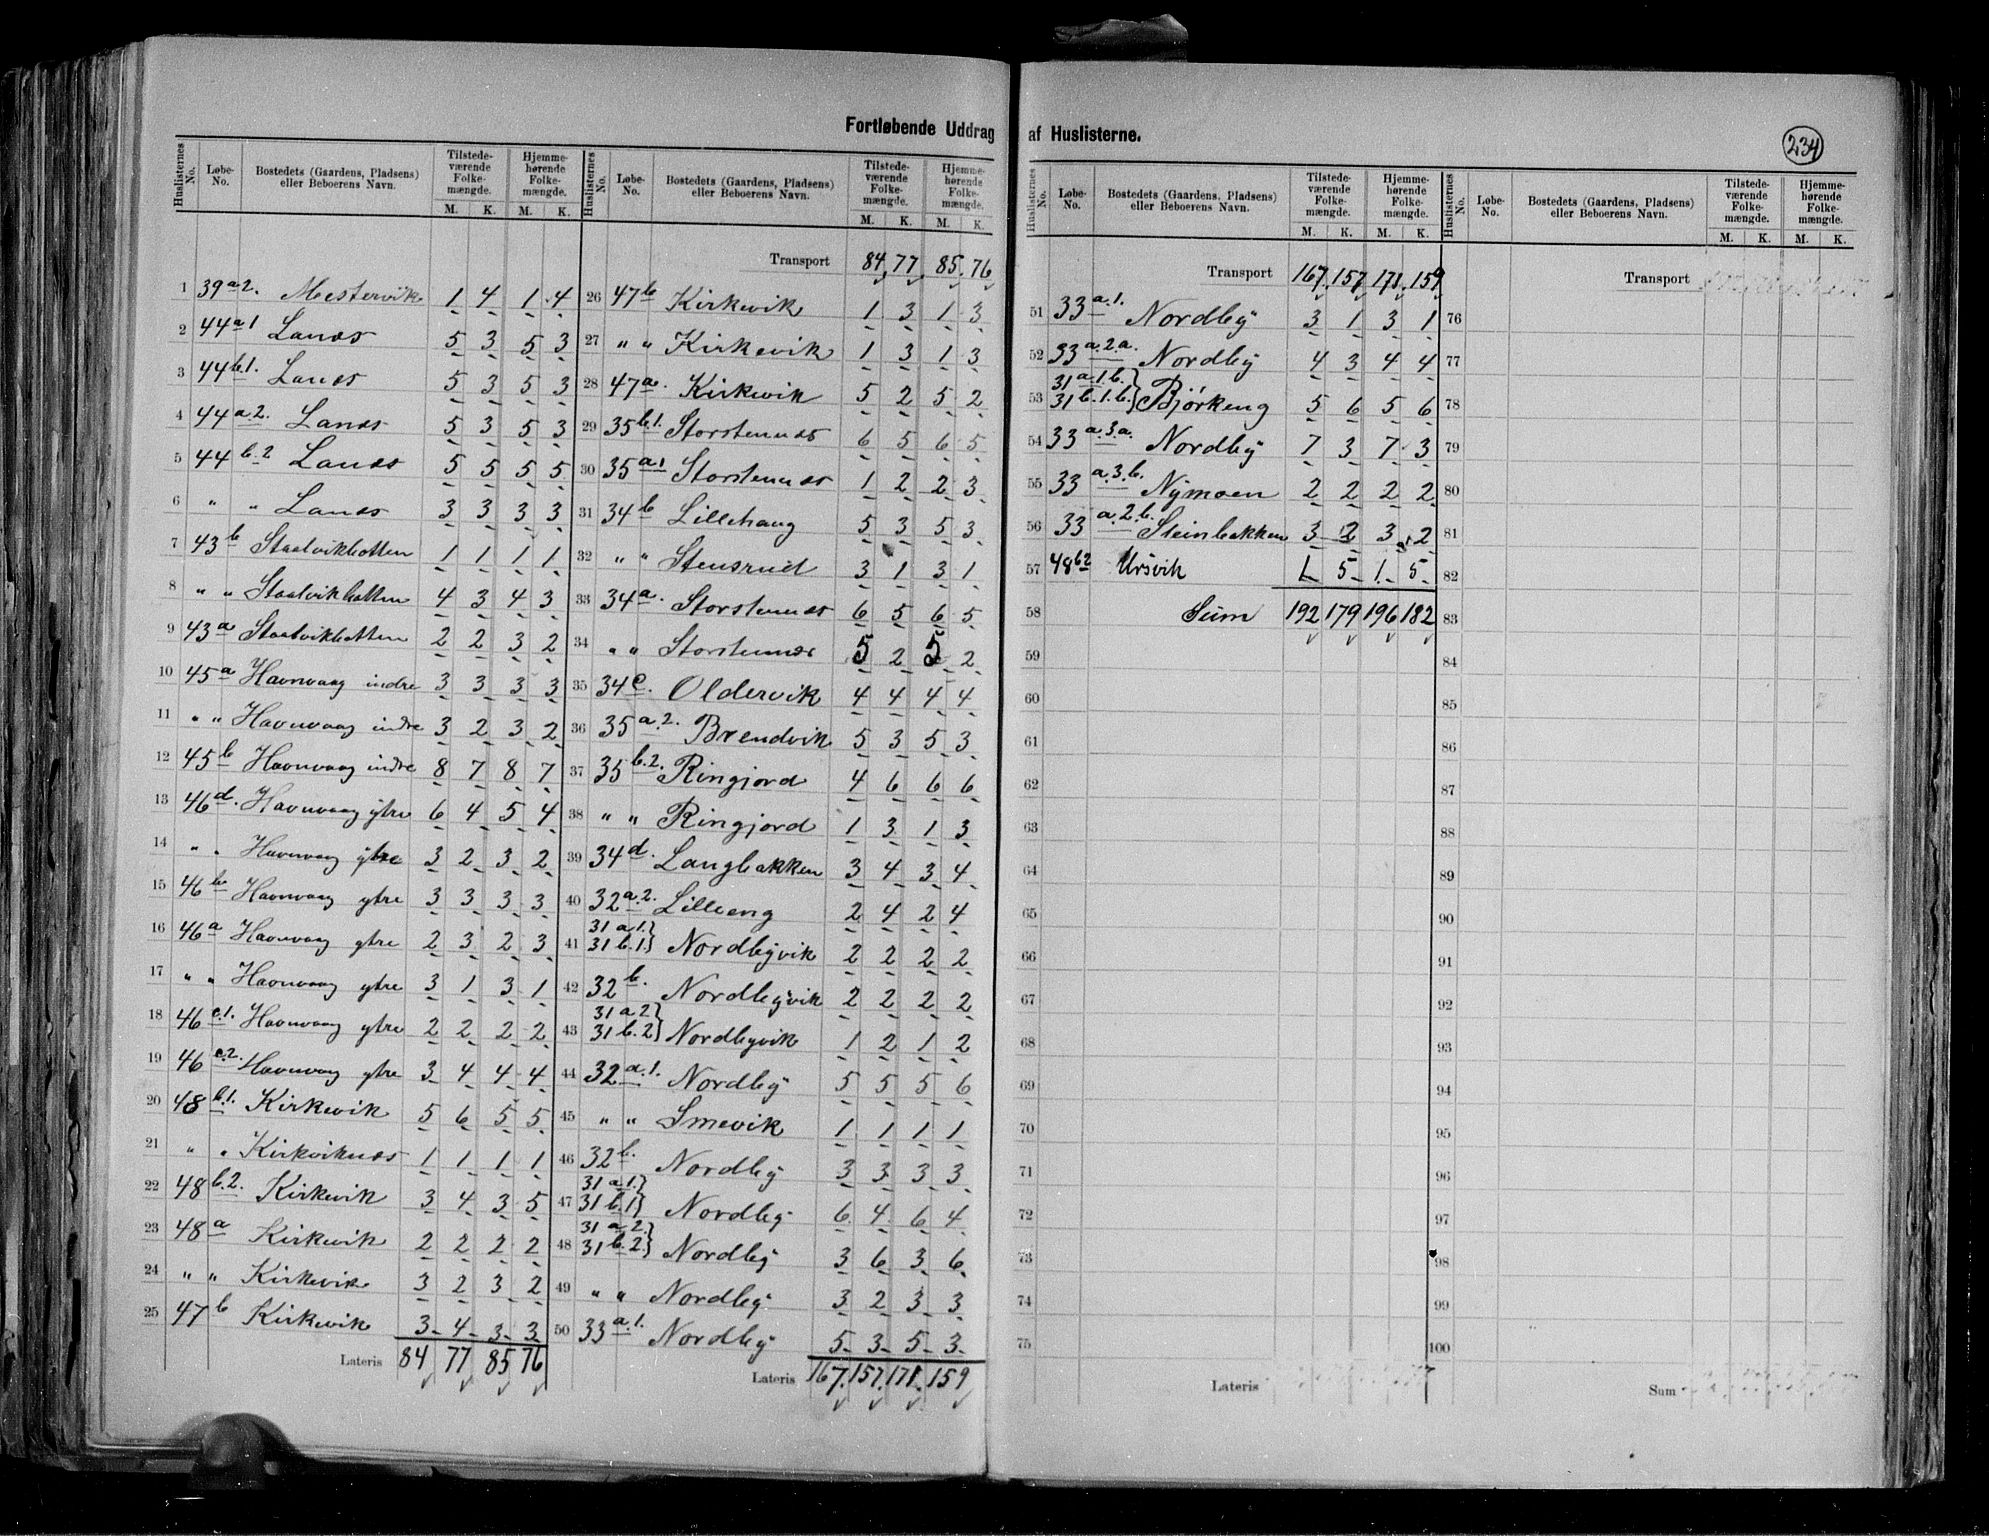 Fortløbende Uddrag af Huslisterne.
234
Huslisternes No. Løbe-No. Bostedets (Gaardens, Pladsens) eller Beboerens Navn. Tilstedeværende Folkemængde. M. K. Hjemmehørende Folkemængde. M. K.
1 39 a 2. Mestervik 1 4 1 4
2 44 a 1 Lanes 5 3 5 3
3 44 b.1. Lanes 5 3 5 3
4 44 a.2. Lanes 5 3 5 3
5 44 b.2 Lanes 5 5 5 5
6 " " Lanes 3 3 3 3
7 43 b Staalvikbotten 1 1 1 1
8 " " Staalvikbotten 4 3 4 3
9 43 a Staalvikbotten 2 2 3 2
10 45 a Havnvaag indre 3 3 3 3
11 " " Havnvaag indre 3 2 3 2
12 45 b Havnvaag indre 8 7 8 7
13 46 d. Havnvaag ytre 6 4 5 4
14 " " Havnvaag ytre 3 2 3 2
15 46 b Havnvaag ytre 3 3 3 3
16 46 a Havnvaag ytre 2 3 2 3
17 " " Havnvaag ytre 3 1 3 1
18 46 c.1. Havnvaag ytre 2 2 2 2
19 46 c.2. Havnvaag ytre 3 4 4 4
20 48 b.1. Kirkevik 5 6 5 5
21 " " Kirkviknes 1 1 1 1
22 48 b.2. Kirkevik 3 4 3 5
23 48 a Kirkevik 2 2 2 2
24 " " Kirkevik 3 2 3 2
25 47 b Kirkevik 3 4 3 3
Lateris 84 77 85 76
Huslisternes No. Løbe-No. Bostedets (Gaardens, Pladsens) eller Beboerens Navn. Tilstedeværende Folkemængde. M. K. Hjemmehørende Folkemængde. M. K.
Transport 84 77 85 76
26 47 b Kirkevik 1 3 1 3
27 " " Kirkevik 1 3 1 3
28 47 a. Kirkevik 5 2 5 2
29 35 b.1. Storstennes 6 5 6 5
30 35 a 1 Storstennes 1 2 2 3
31 34 b Lillehaug 5 3 5 3
32 " " Stensrud 3 1 3 1
33 34 a. Storstennes 6 5 6 5
34 " " Storstennes 5 2 5 2
35 34 c. Oldervik 4 4 4 4
36 35 a.2. Brendvik 5 3 5 3
37 35 b.2. Ringjord 4 6 6 6
38 " " Ringjord 1 3 1 3
39 34 d. Langbakken 3 4 3 4
40 32 a.2. Lilleeng 2 4 2 4
31 a 1.
41 31 b.1. Nordbyvik 2 2 2 2
42 32 b. Nordbyvik 2 2 2 2
31 a 2
43 31 b.2 Nordbyvik 1 2 1 2
44 32 a.1. Nordby 5 5 5 6
45 " " Smevik 1 1 1 1
46 32 b. Nordby 3 3 3 3
31 a 1.
47 31 b.1 Nordby 6 4 6 4
31 a 2.
48 31 b.2. Nordby 3 6 3 6
49 " " Nordby 3 2 3 3
50 33 a.1. Nordby 5 3 5 3
Lateris 167 157 171 159
Huslisternes No. Løbe-No. Bostedets (Gaardens, Pladsens) eller Beboerens Navn. Tilstedeværende Folkemængde. M. K. Hjemmehørende Folkemængde. M. K.
Transport 167 157 171 159
51 33 a.1. Nordby 3 1 3 1
52 33 a.2.a. Nordby 4 3 4 4
31 a.1.b.
53 31 b.1.b. Bjørkeng 5 6 5 6
54 33 a.3.a. Nordby 7 3 7 3
55 33 a.3.b. Nymoen 2 2 2 2
56 33 a.2.b. Steinbakken 3 2 3 2
57 48 b2 Ursvik 1 5 1 5
58 Sum 192 179 196 182
59
60
61
62
63
64
65
66
67
68
69
70
71
72
73
74
75
Lateris
Huslisternes No. Løbe-No. Bostedets (Gaardens, Pladsens) eller Beboerens Navn. Tilstedeværende Folkemængde. M. K. Hjemmehørende Folkemængde. M. K.
Transport
76
77
78
79
80
81
82
83
84
85
86
87
88
89
90
91
92
93
94
95
96
97
98
99
100
Sum